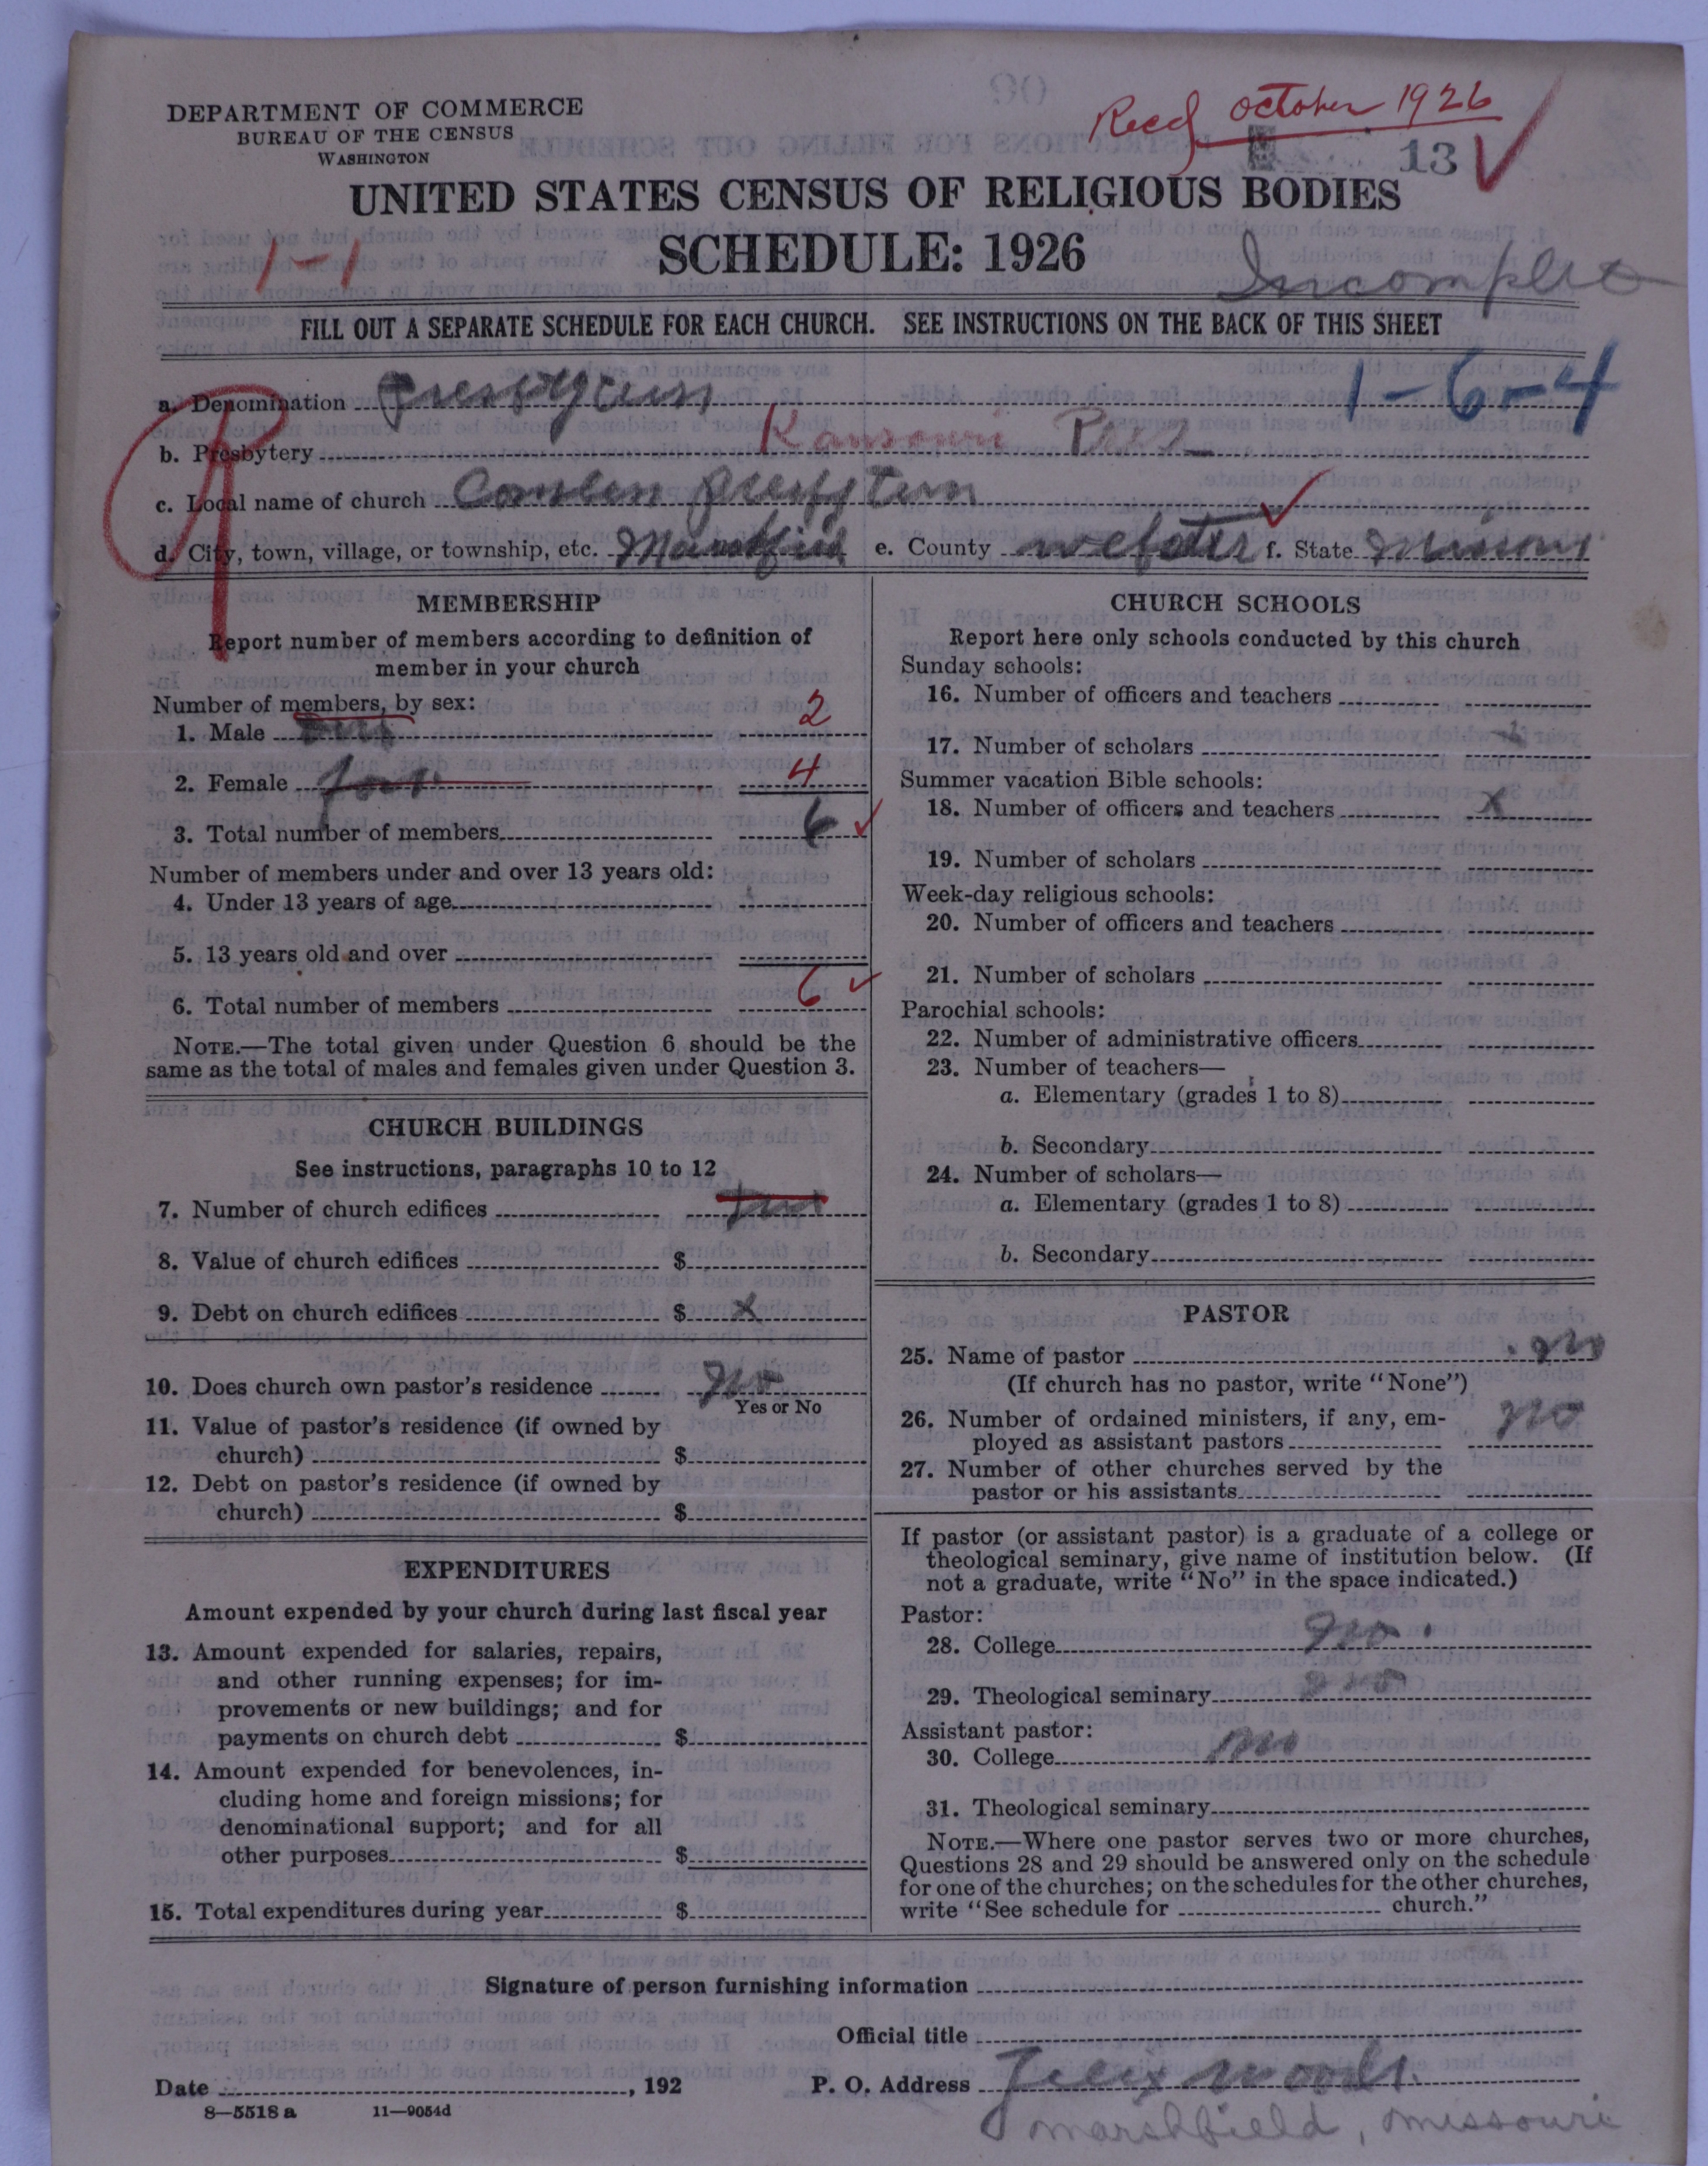 DEPARTMENT OF COMMERCE
BUREAU OF THE CENSUS
WASHINGTON
Recd October 1926
13
UNITED STATES CENSUS OF RELIGIOUS BODIES
SCHEDULE: 1926
1-1
Incomplete
FILL OUT A SEPARATE SCHEDULE FOR EACH CHURCH. SEE INSTRUCTIONS ON THE BACK OF THIS SHEET
1-6-4
a. Denomination
b. Presbytery
c. Local name of church
d. City, town, village, or township, etc. e. County webster f. State
MEMBERSHIP
Report number of members according to definition of
member in your church
Number of members, by sex:
1. Male 2
2. Female four 4
3. Total number of members 6
Number of members under and over 13 years old:
4. Under 13 years of age
5. 13 years old and over
6. Total number of members 6
NOTE.—The total given under Question 6 should be the
same as the total of males and females given under Question 3.
CHURCH BUILDINGS
See instructions, paragraphs 10 to 12
7. Number of church edifices
8. Value of church edifices $
9. Debt on church edifices $ x
10. Does church own pastor's residence no
Yes or No
11. Value of pastor's residence (if owned by
church) $
12. Debt on pastor's residence (if owned by
church) $
EXPENDITURES
Amount expended by your church during last fiscal year
13. Amount expended for salaries, repairs,
and other running expenses; for im-
provements or new buildings; and for
payments on church debt $
14. Amount expended for benevolences, in-
cluding home and foreign missions; for
denominational support; and for all
other purposes $
15. Total expenditures during year $
CHURCH SCHOOLS
Report here only schools conducted by this church
Sunday schools:
16. Number of officers and teachers
17. Number of scholars
Summer vacation Bible schools:
18. Number of officers and teachers x
19. Number of scholars
Week-day religious schools:
20. Number of officers and teachers
21. Number of scholars
Parochial schools:
22. Number of administrative officers
23. Number of teachers—
a. Elementary (grades 1 to 8)
b. Secondary
24. Number of scholars—
a. Elementary (grades 1 to 8)
b. Secondary
PASTOR
25. Name of pastor no
(If church has no pastor, write "None")
26. Number of ordained ministers, if any, em-
ployed as assistant pastors no
27. Number of other churches served by the
pastor or his assistants
If pastor (or assistant pastor) is a graduate of a college or
theological seminary, give name of institution below. (If
not a graduate, write "No" in the space indicated.)
Pastor:
28. College no.
29. Theological seminary no
Assistant pastor:
30. College no
31. Theological seminary
NOTE.—Where one pastor serves two or more churches,
Questions 28 and 29 should be answered only on the schedule
for one of the churches; on the schedules for the other churches,
write "See schedule for church."
Signature of person furnishing information
Official title
Date , 192 P. O. Address Felix woods.
marshfield, missouri
8—5518 a 11—9054d